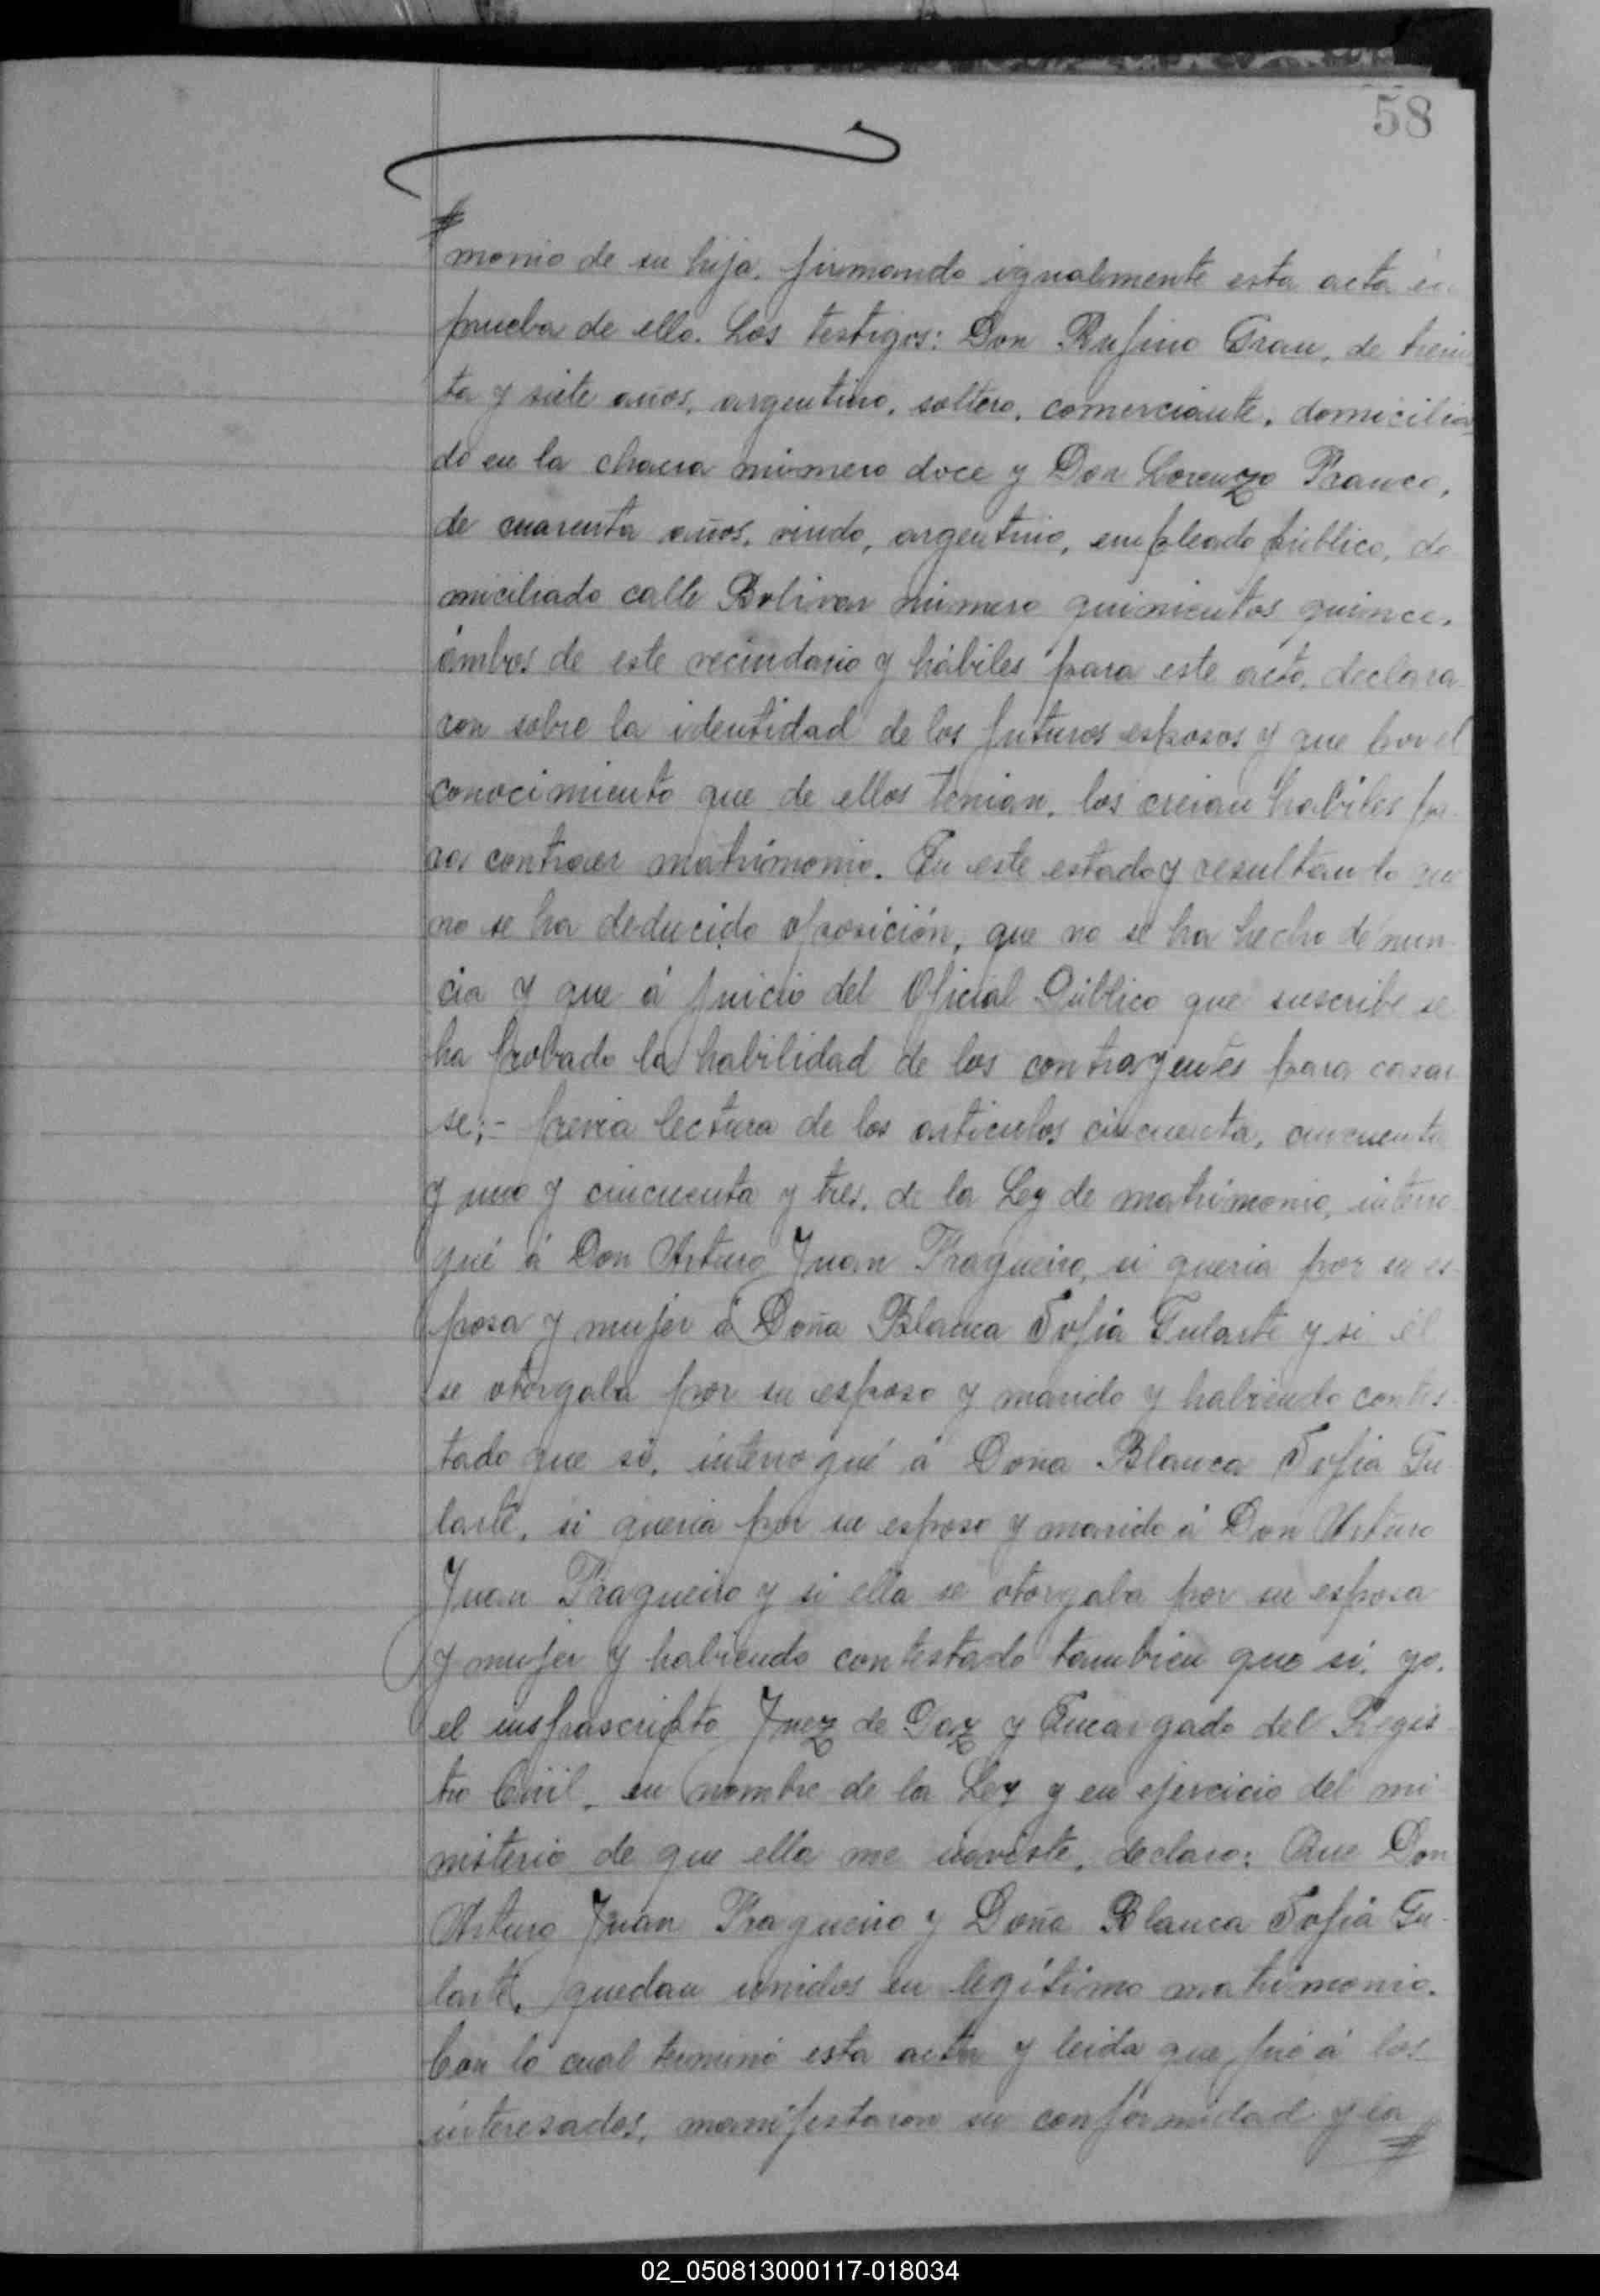 58
monio de su hija, firmando igualmente esta acta en
prueba de ello. Los testigos: Don Rufino Grau, de trein
ta y siete años, argentino, soltero, comerciante, domicilia
do en la chacra número doce y Don Lorenzo Franco,
de cuarenta años, viudo, argentino, empleado público, do
miciliado calle Bolivar número quinientos quince,
ámbos de este vecindario y hábiles para este acto, declara
ron sobre la identidad de los futuros esposos y que por el
conocimiento que de ellos tenian, los creian habiles pa-
ra contraer matrimonio. En este estado y resultando que
no se ha deducido oposición, que no se ha hecho denun-
cia y que á juicio del Oficial Público que suscribe se
ha probado la habilidad de los contrayentes para casar
se;- previa lectura de los articulos cincuenta, cincuenta
y uno y cincuenta y tres, de la Ley de matrimonio, interro-
gué á Don Arturo Juan Fragueiro, si queria por su es-
posa y mujer á Doña Blanca Sofia Gularte y si él
se otorgaba por su esposo y marido y habiendo contes-
tado que si, interrogué á Doña Blanca Sofia Gu-
larte, si queria por su esposo y marido á Don Arturo
Juan Fragueiro y si ella se otorgaba por su esposa
y mujer y habiendo contestado tambien que si, yo,
el insfrascripto Juez de Paz y Encargado del Regis-
tro Civil, en nombre de la Ley y en ejercicio del mi-
nisterio de que ella me inviste, declaro: Que Don
Arturo Juan Fragueiro y Doña Blanca Sofia Gu-
larte, quedan unidos en legítimo matrimonio.
Con lo cual terminó esta acta y leida que fué á los
interesados, manifestaron su conformidad y la
02_050813000117-018034